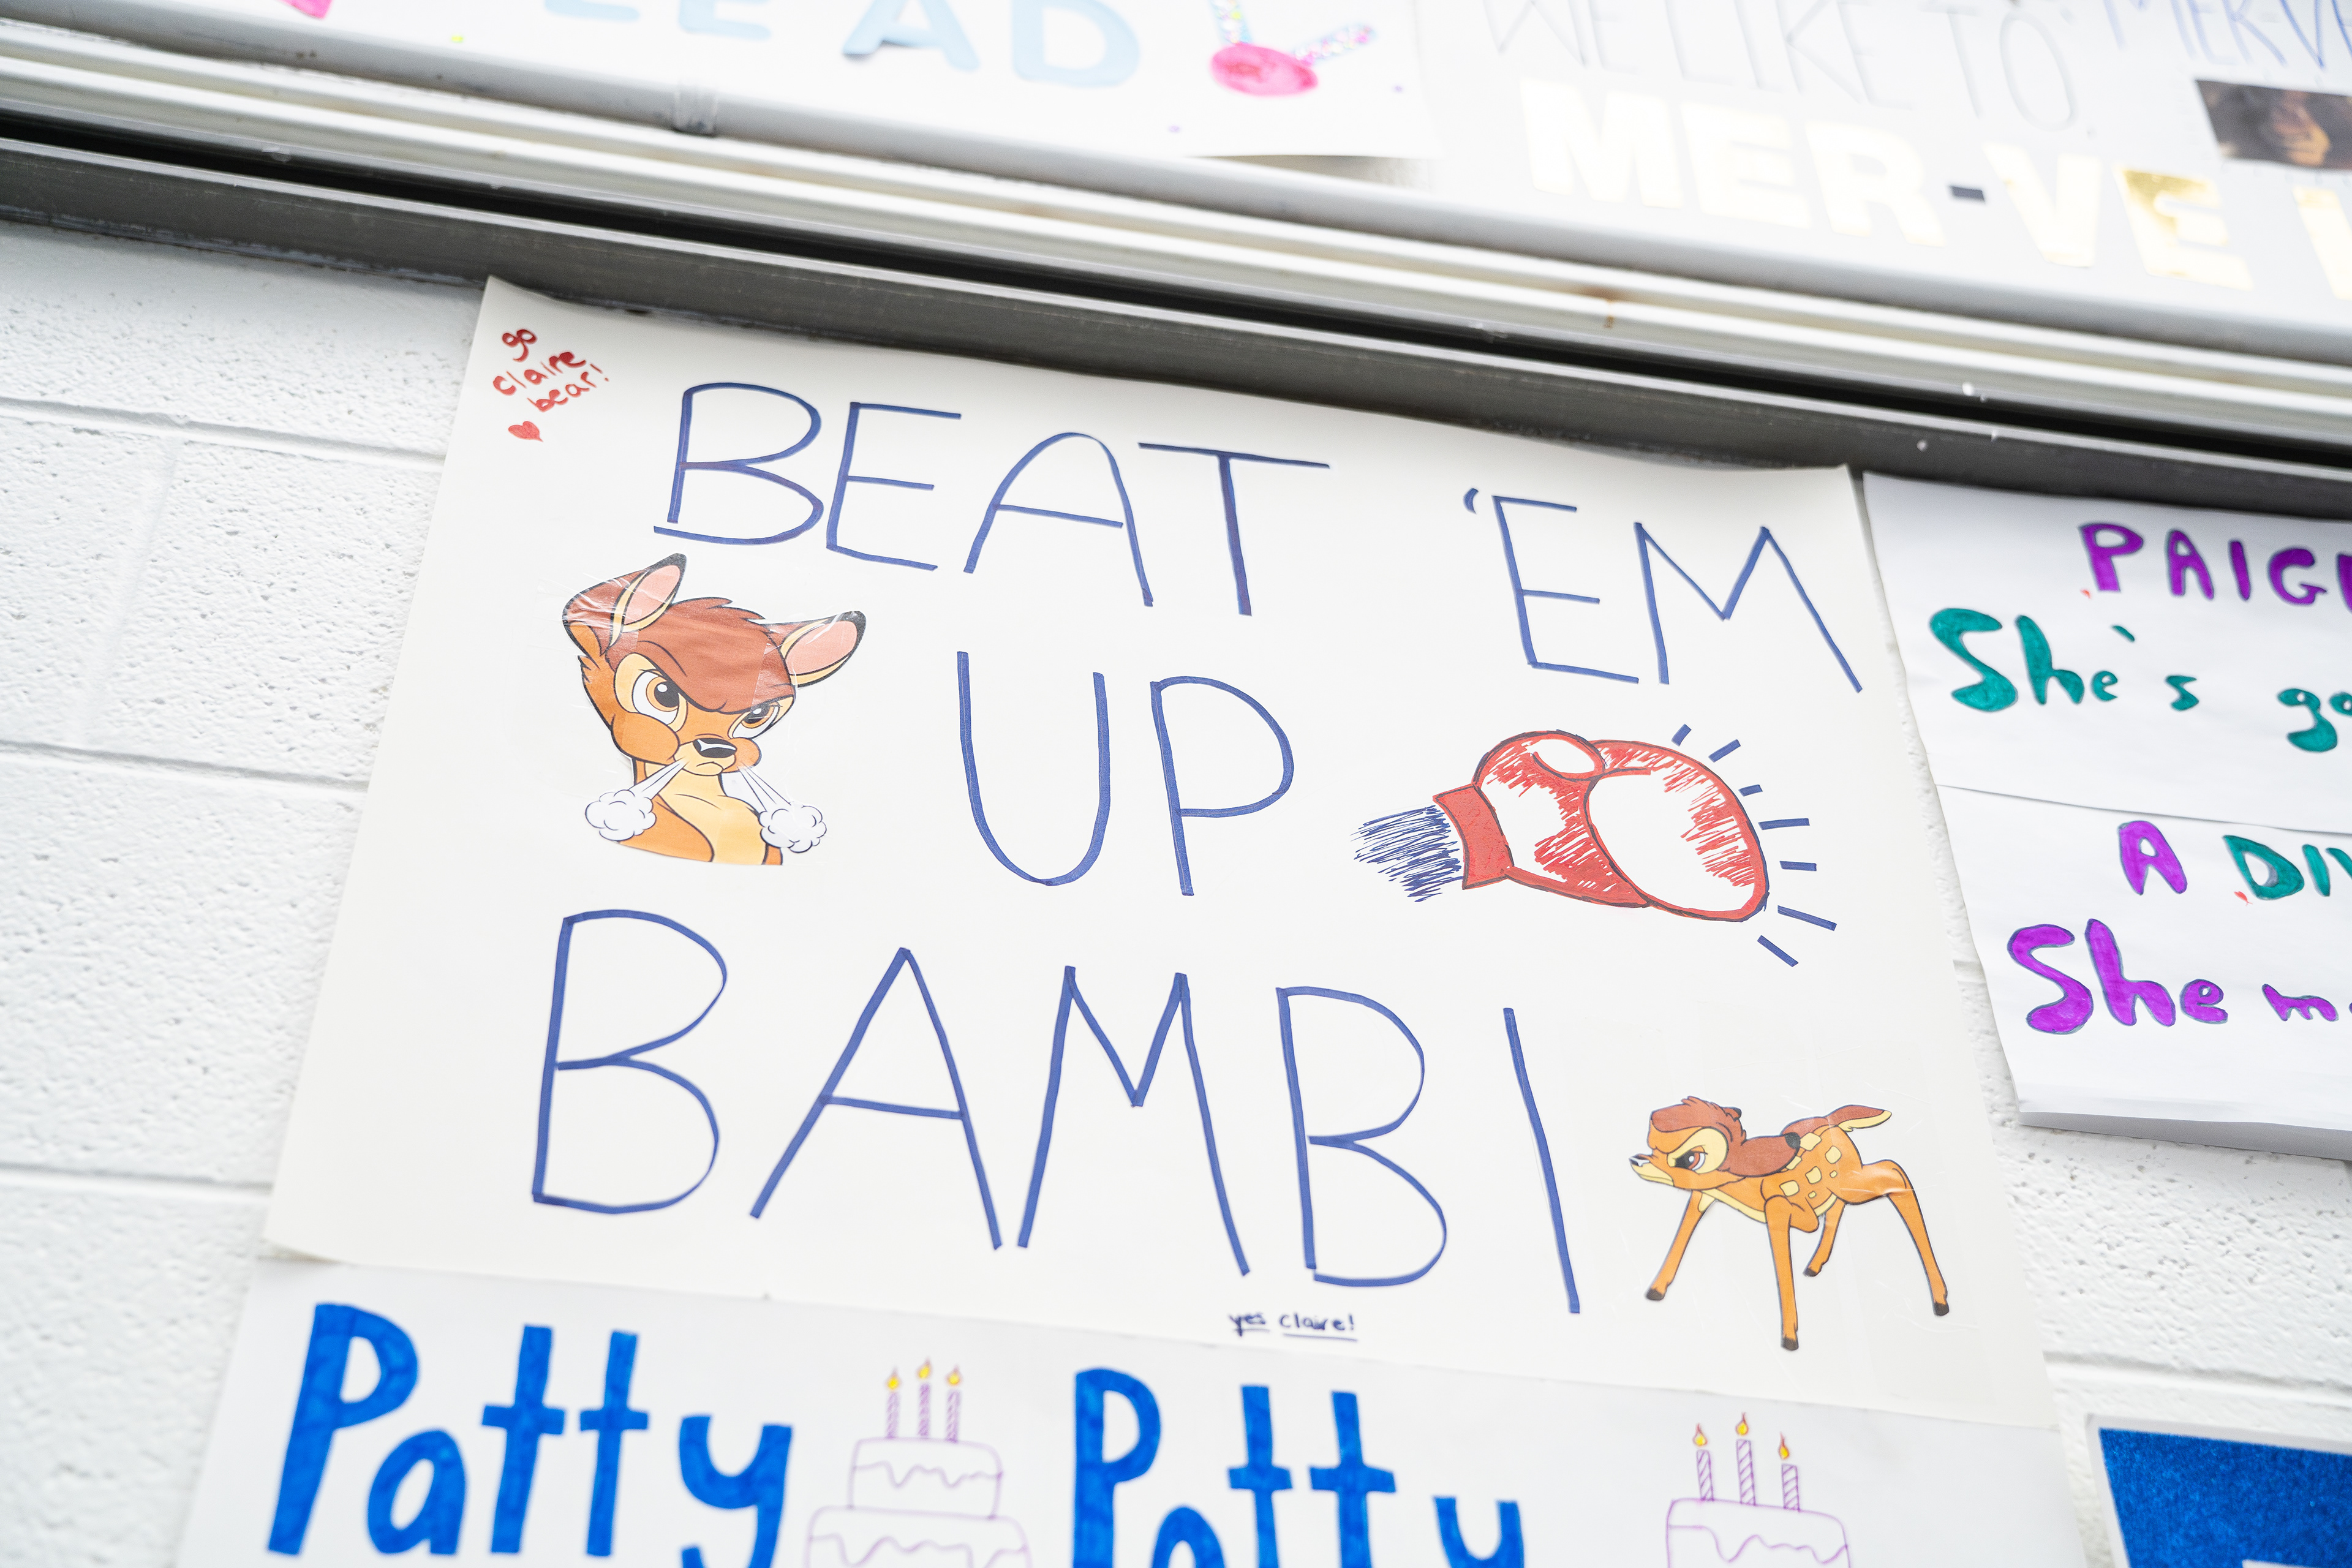 LEAD
WE LIKE TO
MER-VE
go
claire
bear!
BEAT 'EM
UP
BAMBI
yes claire!
She's
A
She
Patty Patty